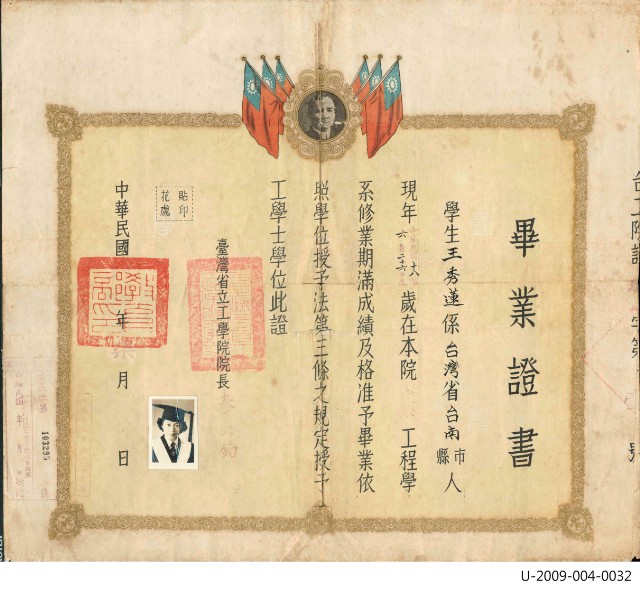 畢業證書
學生王秀蓮係台灣省台南縣市人
現年 歲在本院 工程學
系修業期滿成績及格准予畢業依
照學位授予法第三條之規定授予
工學士學位此證
臺灣省立工學院院長
貼印
花處
中華民國 年 月 日
103295
U-2009-004-0032